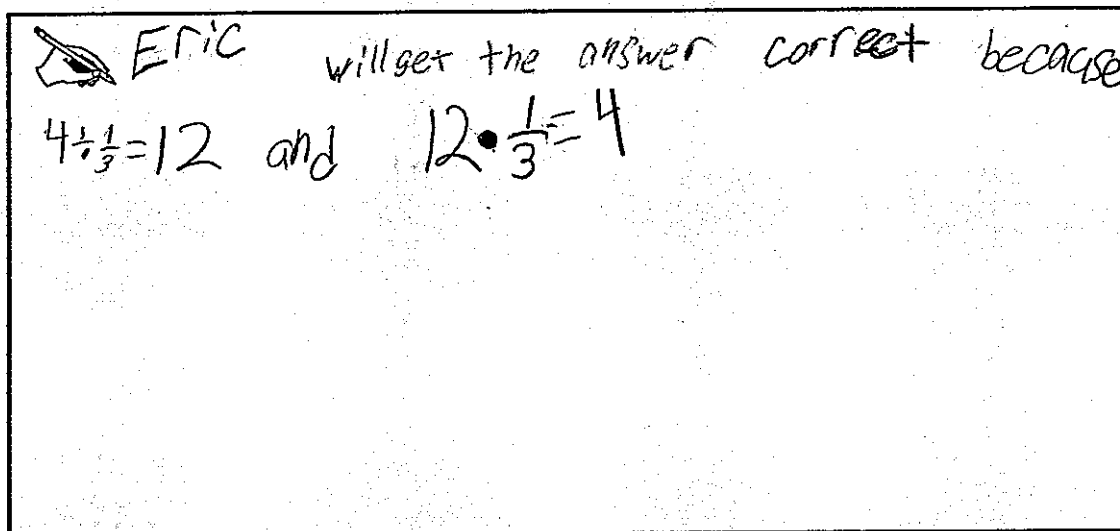 Eric will get the answer correct because
4 ÷ 1/3 = 12 and 12 • 1/3 = 4